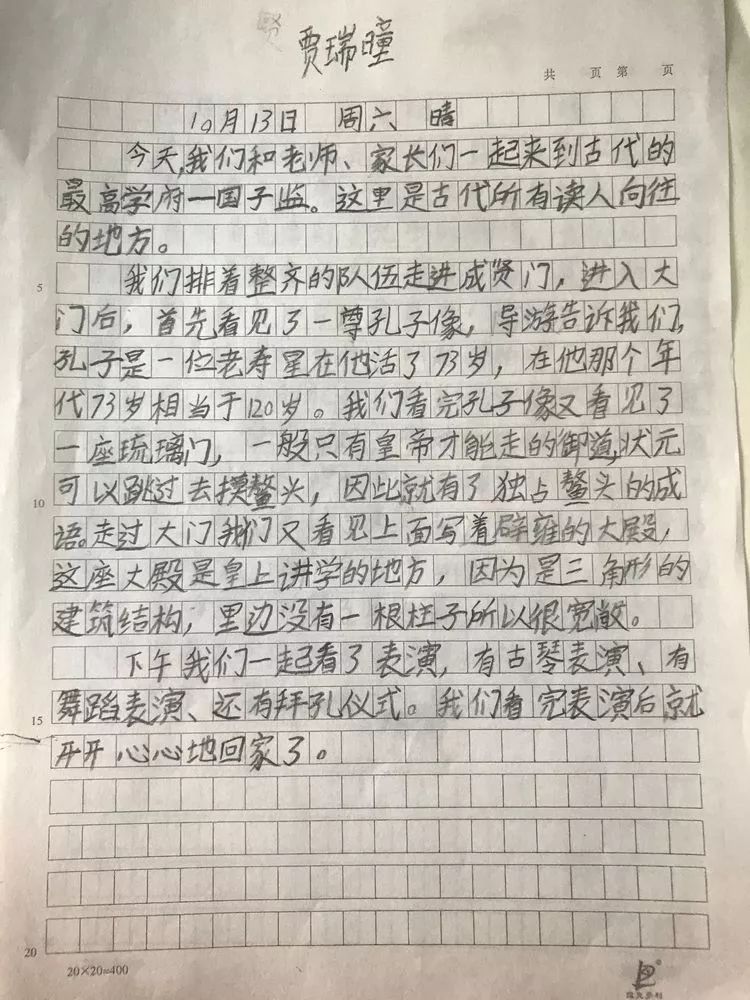 贾瑞曈
共 页 第 页
10月13日 周六 晴
今天,我们和老师、家长们一起来到古代的
最高学府一国子监。这里是古代所有读人向往
的地方。
5
我们排着整齐的队伍走进成贤门，进入大
门后，首先看见了一尊孔子像，导游告诉我们,
孔子是一位老寿星在他活了73岁，在他那个年
代73岁相当于120岁。我们看完孔子像又看见了
一座琉璃门，一般只有皇帝才能走的御道,状元
10
可以跳过去摸鳌头，因此就有了独占鳌头的成
语。走过大门我们又看见上面写着辟雍的大殿，
这座大殿是皇上讲学的地方，因为是三角形的
建筑结构，里边没有一根柱子所以很宽敞。
下午我们一起看了表演，有古琴表演、有
15
舞蹈表演、还有拜孔仪式。我们看完表演后就
开开心心地回家了。
20
20×20=400